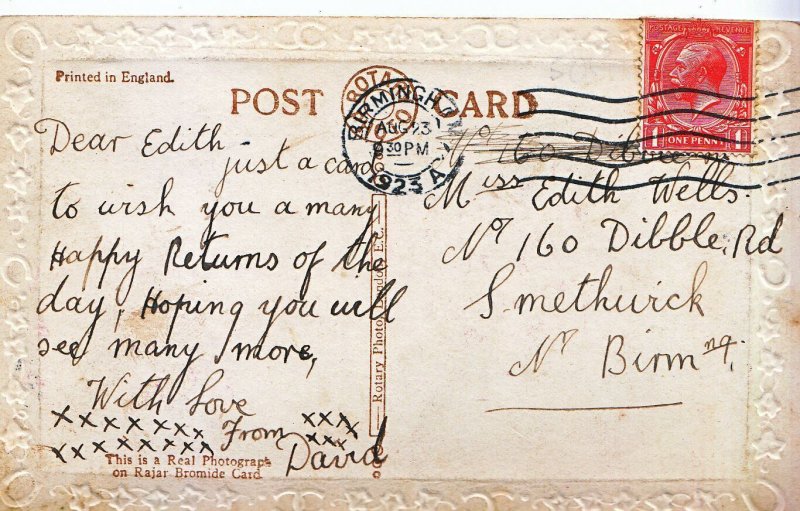 Printed in England.
POST CARD
ROTA
BIRMINGHAM
AUG 23
30 PM
1923
POSTAGE REVENUE
1 ONE PENNY 1
Dear Edith
just a card
to wish you a many
Happy Returns of the
day, Hoping you will
see many more,
With Love
xxxxxxx From xxx
xxxxxxxx xxx
David
This is a Real Photograph
on Rajar Bromide Card.
Rotary Photo, London, E.C.
No 160
Miss Edith Wells.
No 160 Dibble, Rd
Smethwick
Nr Birmng.